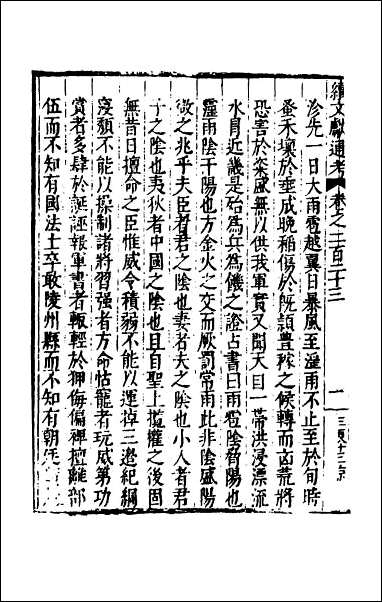 續文獻通考 卷之二百二十三
沴先一日大雨雹越翼日暴風至淫雨不止至於旬時
蚕禾壞於垂成晚稲傷於既頴豊稼之候轉而㐫荒將
恐害於粢盛無以供我軍實又聞天目一帶洪浸漂流
水冐近畿是殆為兵為饑之證占書曰雨雹陰脅陽也
霪雨陰干陽也方金火之交而厥罰常雨此非陰盛陽
微之兆乎夫臣者君之陰也妻者夫之陰也小人者君
子之陰也夷狄者中國之陰也且自聖上攬權之後固
無昔日擅命之臣惟威令積弱不能以運掉三邉紀綱
寖頽不能以操制諸將習强者方命怙寵者玩威第功
賞者多肆於誕誣報軍書者輙輕於狎侮偏禆擅離部
伍而不知有國法士卒敢陵州縣而不知有朝廷
一